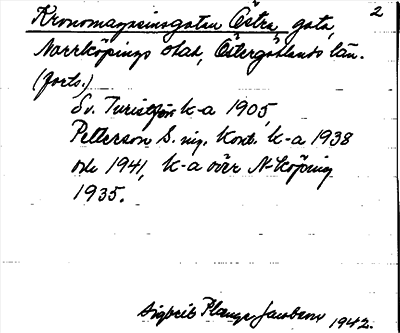 2
Kronomagasinsgatan Östra, gata,
Norrköpings stad, Östergötlands län.
(forts.)
Sv. Turistför. k-a 1905,
Petterson S. ing. kont. k-a 1938
och 1941, k-a över N-köping
1935.
Sigbrit Plænge Jacobson 1942.